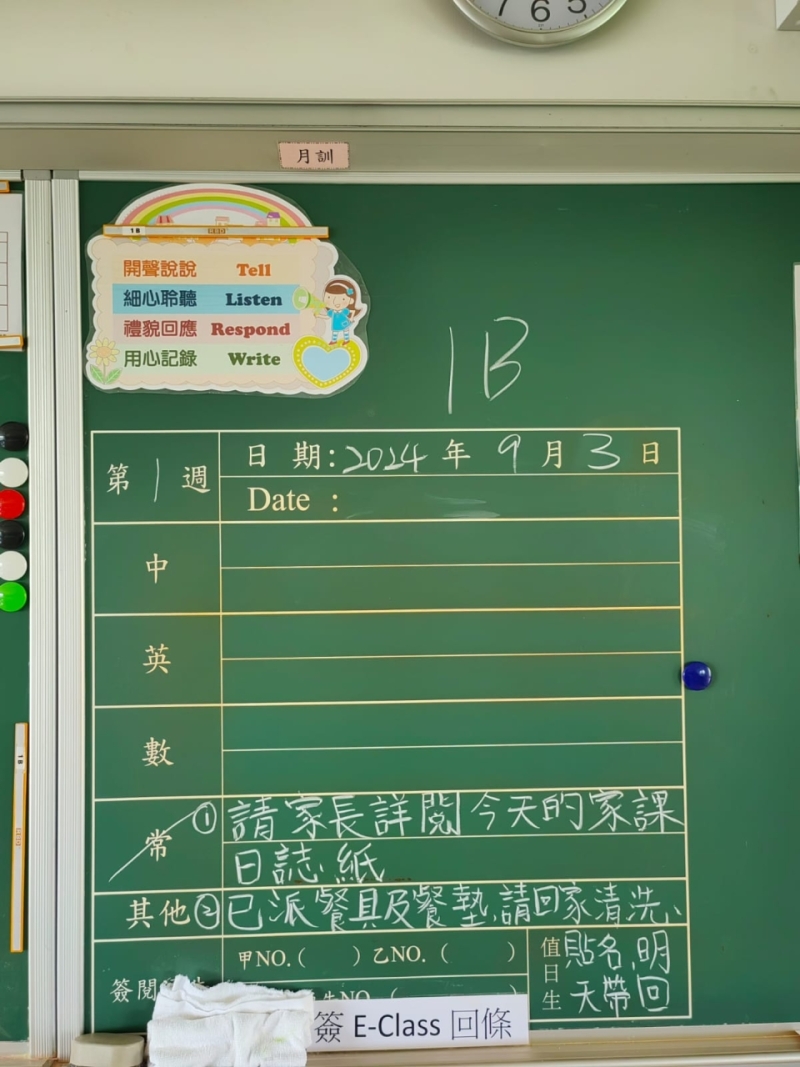 7 6 5
月訓
1B
開聲說說 Tell
細心聆聽 Listen
禮貌回應 Respond
用心記錄 Write
1B
第 1 週
日 期：2024 年 9 月 3 日
Date ：
中
英
數
常 ① 請家長詳閱今天的家課
日誌紙
其他 ② 已派餐具及餐墊,請回家清洗、
貼名,明
天帶回
甲NO.（ ）乙NO.（ ）
值日生
簽閱
簽 E-Class 回條
1B